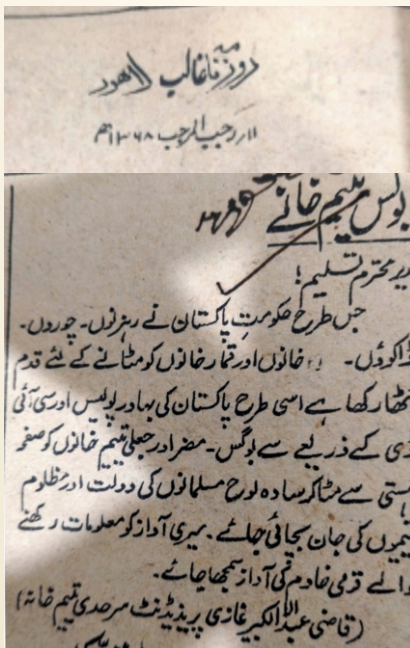 روزنامہ غالب لاہور
۱۱؍ رجب المرجب ۱۳۶۸ھ
بوگس یتیم خانے
مدیر محترم تسلیم!
جس طرح حکومت پاکستان نے رہزنوں۔ چوروں۔
ڈاکوؤں۔ خانوں اور قمار خانوں کو مٹانے کے لئے قدم
اٹھا رکھا ہے اسی طرح پاکستان کی بہادر پولیس اور سی آئی
ڈی کے ذریعے سے بوگس۔ مضر اور جعلی یتیم خانوں کو صفحہ
ہستی سے مٹا کر سادہ لوح مسلمانوں کی دولت اور مظلوم
یتیموں کی جان بچائی جائے۔ میری آواز کو معلومات رکھنے
والے قومی خادم کی آواز سمجھا جائے۔
(قاضی عبدالکبیر غازی پریذیڈنٹ سرحدی یتیم خانہ)